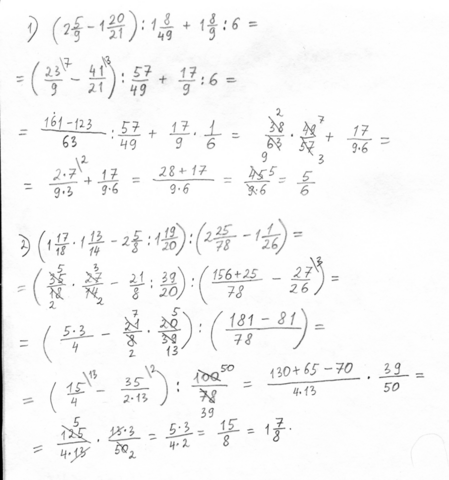 1) (2 5/9 - 1 20/21) : 1 8/49 + 1 8/9 : 6 =
= (23/9 \7 - 41/21 \3) : 57/49 + 17/9 : 6 =
= (161-123)/63 : 57/49 + 17/9 · 1/6 = 38 2/63 9 · 49 7/57 3 + 17/(9·6) =
= (2·7)/(9·3) \2 + 17/(9·6) = (28+17)/(9·6) = 45 5/(9·6) = 5/6
2) (1 17/18 · 1 13/14 - 2 5/8 : 1 19/20) : (2 25/78 - 1 1/26) =
= (35 5/18 2 · 27 3/14 2 - 21/8 : 39/20) : ((156+25)/78 - 27/26 \3) =
= ((5·3)/4 - 21 7/8 2 · 20 5/39 13) : ((181-81)/78) =
= (15/4 \13 - 35/(2·13) \2) : 100 50/78 39 = (130+65-70)/(4·13) · 39/50 =
= 125 5/(4·13) · (13·3)/50 2 = (5·3)/(4·2) = 15/8 = 1 7/8.